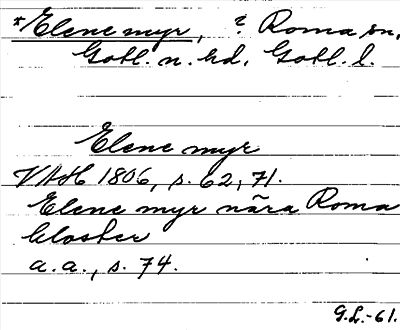 *Elene myr, ? Roma sn,
Gotl. n. hd, Gotl. l.
Elene myr
VAH 1806, s. 62, 71.
Elene myr nära Roma
Closter
a.a., s. 74.
G.L.-61.